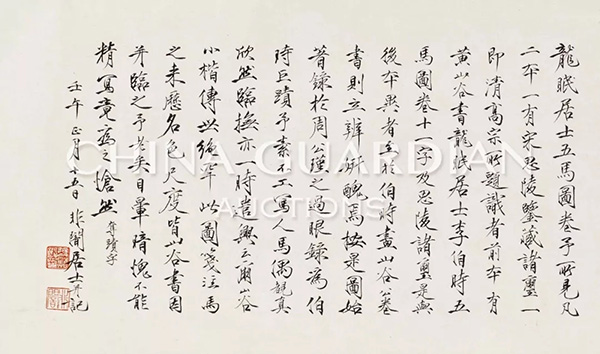 龍眠居士五馬圖卷予所見凡
二本一有宋思陵鑒藏諸璽一
即清高宗所題識者前本有
黃山谷書龍眠居士李伯時五
馬圖卷十一字及思陵諸璽是與
後本異者至於伯時畫山谷箋
書則立辨妍醜焉按是圖始
著錄於周公瑾之過眼錄為伯
時巨蹟予素不工寫人馬偶覩真
欣然臨撫亦一時喜興云爾山谷
小楷傳世絕罕此圖箋注馬
之來歷名色尺度皆山谷書因
并臨之予老矣目暈瞎愧不能
精寫竟為之愴然
真下奪蹟字
壬午正月十五日非闇居士并記
CHINA GUARDIAN
AUCTIONS